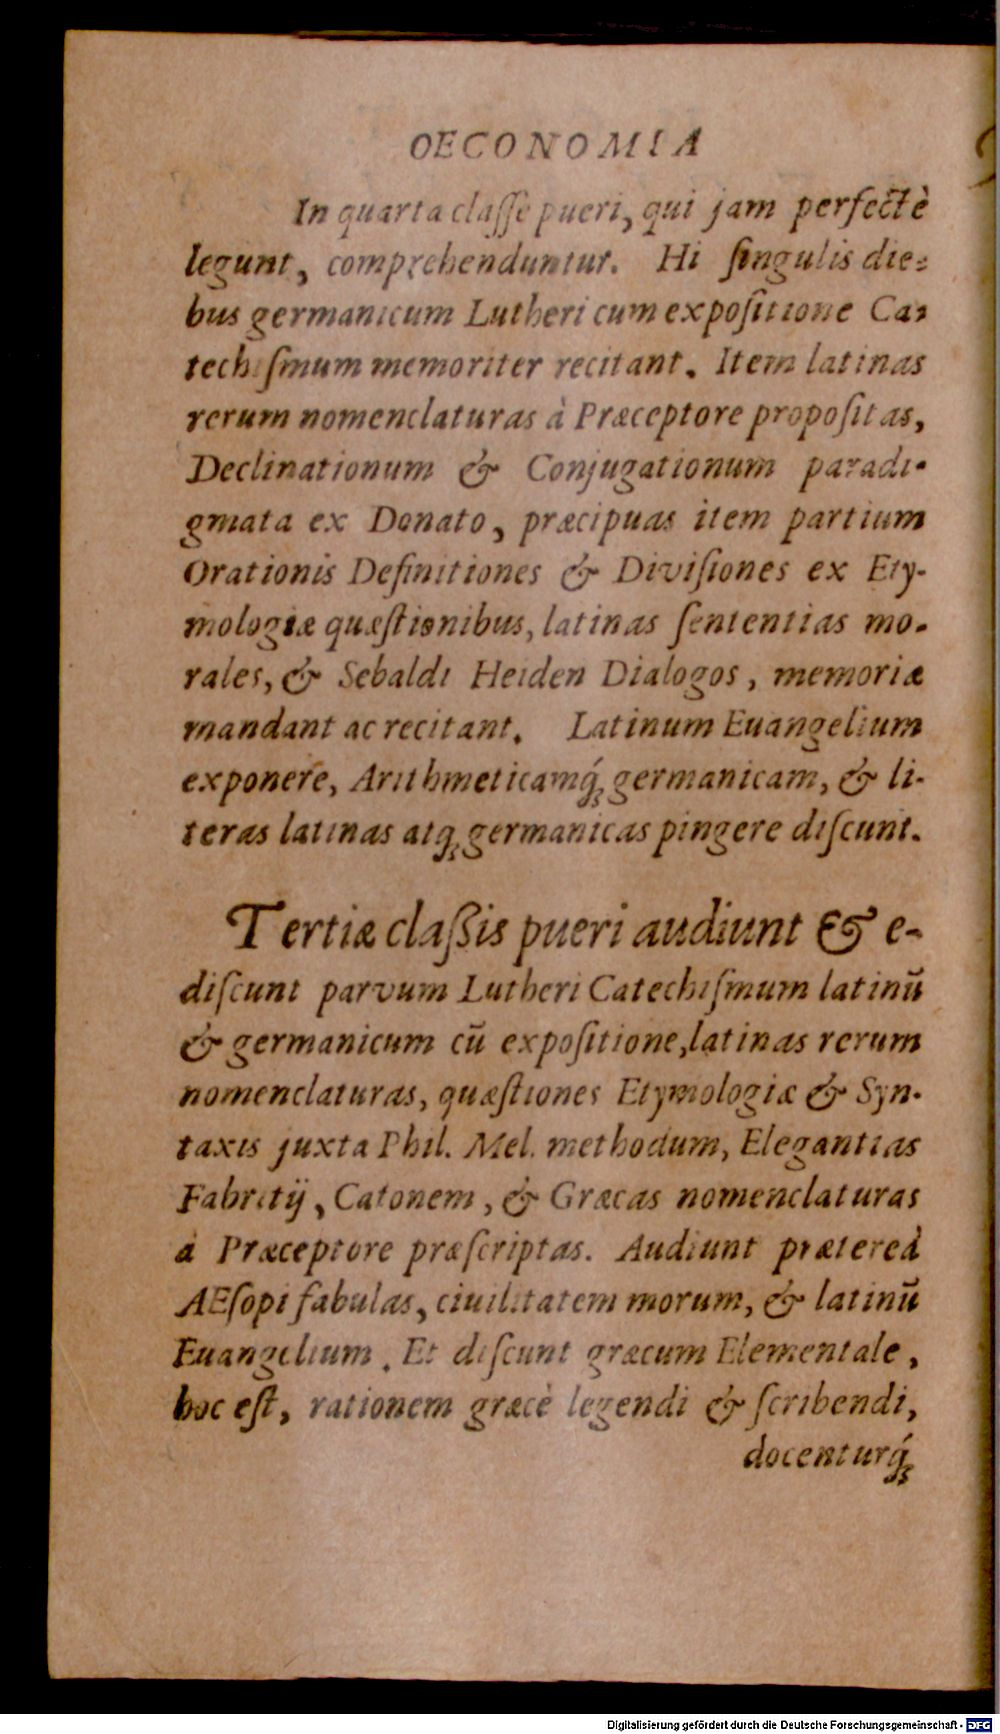 OECONOMIA
In quarta claſſe pueri, qui jam perfectè
legunt, comprehenduntur. Hi ſingulis die-
bus germanicum Lutheri cum expoſitione Ca-
techiſmum memoriter recitant. Item latinas
rerum nomenclaturas à Præceptore propoſitas,
Declinationum & Conjugationum paradi-
gmata ex Donato, præcipuas item partium
Orationis Definitiones & Diviſiones ex Ety-
mologiæ quæſtionibus, latinas ſententias mo-
rales, & Sebaldi Heiden Dialogos, memoriæ
mandant ac recitant. Latinum Euangelium
exponere, Arithmeticamq́ꝫ germanicam, & li-
teras latinas atqꝫ germanicas pingere diſcunt.
Tertiæ claßis pueri audiunt & e-
diſcunt parvum Lutheri Catechiſmum latinū
& germanicum cū expoſitione, latinas rerum
nomenclaturas, quæſtiones Etymologiæ & Syn-
taxis juxta Phil. Mel. methodum, Elegantias
Fabritij, Catonem, & Græcas nomenclaturas
à Præceptore præſcriptas. Audiunt prætereà
AEſopi fabulas, ciuilitatem morum, & latinū
Euangelium. Et diſcunt græcum Elementale,
hoc eſt, rationem græcè legendi & ſcribendi,
docenturq́ꝫ
Digitalisierung gefördert durch die Deutsche Forschungsgemeinschaft - DFG